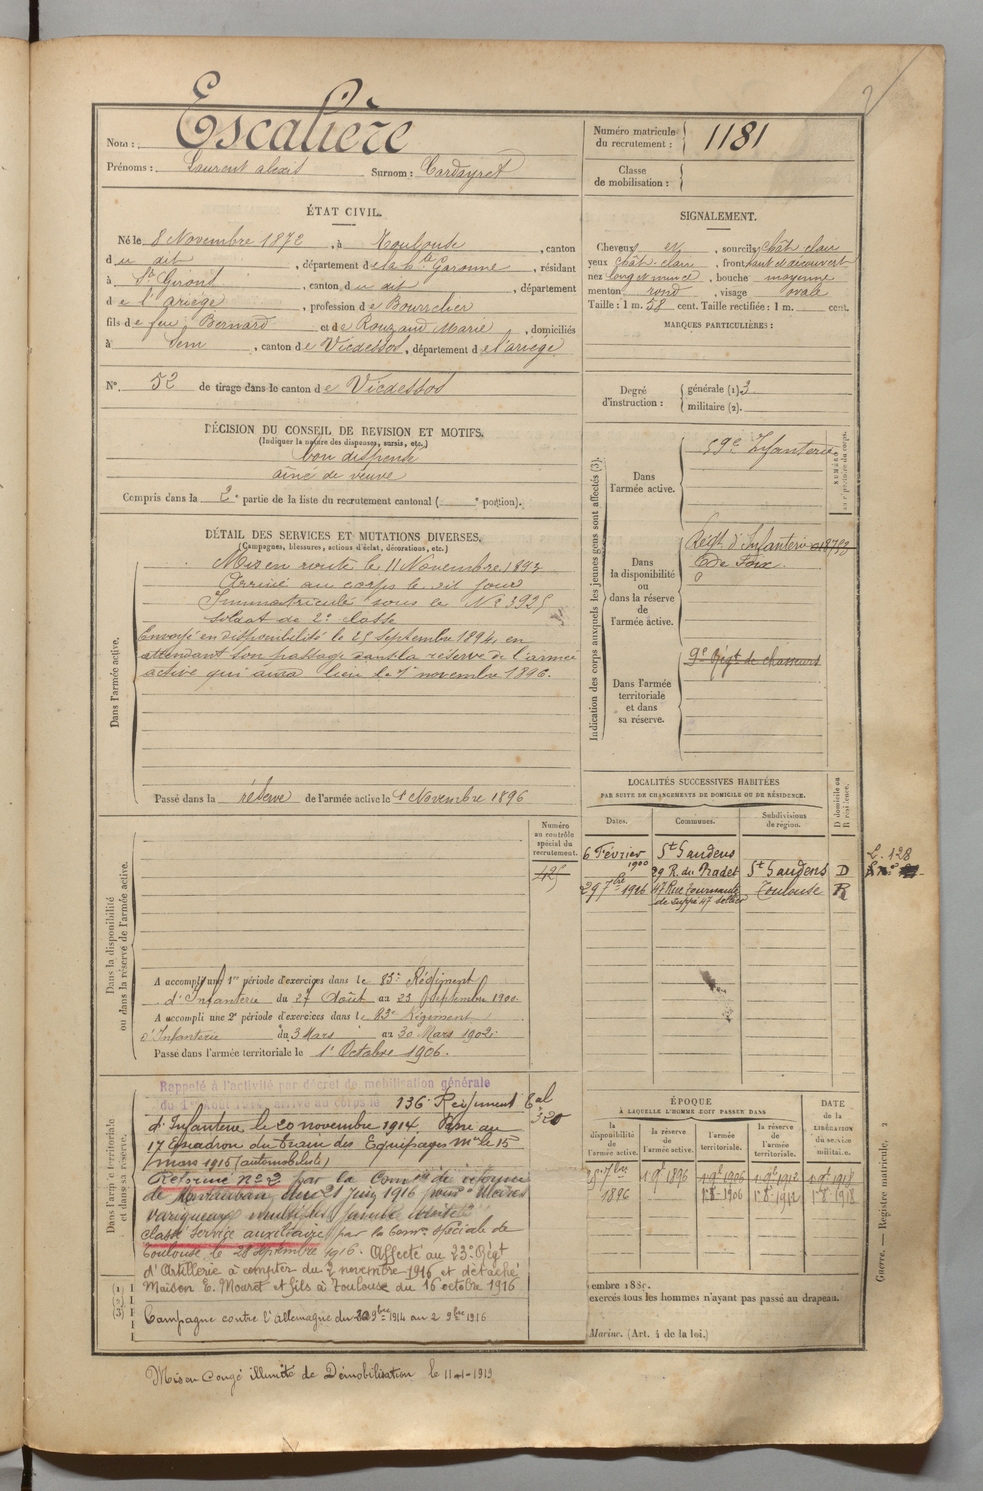 Nom : Escalière
Prénoms : Laurent alexis Surnom : Cardayret
Numéro matricule du recrutement : 1181
Classe de mobilisation :
ÉTAT CIVIL.
Né le 8 Novembre 1872, à Toulouse, canton
du dit, département de la hte Garonne, résidant
à St Girons, canton du dit, département
de l'ariège, profession de Bourrelier
fils de feu Bernard et de Rouzaud Marie, domiciliés
à Sem, canton de Vicdessos, département de l'ariège
N° 52 de tirage dans le canton de Vicdessos
SIGNALEMENT.
Cheveux et, sourcils chât clair
yeux chât. clair, front haut et découvert
nez long et mince, bouche moyenne
menton rond, visage ovale
Taille : 1 m. 58 cent. Taille rectifiée : 1 m. cent.
MARQUES PARTICULIÈRES :
Degré d'instruction : générale (1) 3
militaire (2).
DÉCISION DU CONSEIL DE REVISION ET MOTIFS.
(Indiquer la nature des dispenses, sursis, etc.)
bon dispensé
aîné de veuve
Compris dans la 2e partie de la liste du recrutement cantonal ( e portion).
DÉTAIL DES SERVICES ET MUTATIONS DIVERSES.
(Campagnes, blessures, actions d'éclat, décorations, etc.)
Dans l'armée active.
Mis en route le 11 Novembre 1893
Arrivé au corps le dit jour
Immatriculé sous le No 3925
soldat de 2e classe
Envoyé en disponibilité le 25 septembre 1894, en
attendant son passage dans la réserve de l'armée
active qui aura lieu le 1er novembre 1896.
Passé dans la réserve de l'armée active le 1er Novembre 1896
Indication des corps auxquels les jeunes gens sont affectés (3).
Dans l'armée active.
59e Infanterie
Dans la disponibilité ou dans la réserve de l'armée active.
Régt d'Infanterie
de Foix
Dans l'armée territoriale et dans sa réserve.
9e Régt de chasseurs
LOCALITÉS SUCCESSIVES HABITÉES
PAR SUITE DE CHANGEMENTS DE DOMICILE OU DE RÉSIDENCE.
D domicile ou R résidence.
Dates. Communes. Subdivisions de région.
6 Février 1900 St Gaudens 29 R. du Pradet St Gaudens D
29 7bre 1906 47 Rue Tournante Toulouse R
L. 128
Numéro au contrôle spécial du recrutement.
425
Dans la disponibilité ou dans la réserve de l'armée active.
A accompli une 1re période d'exercices dans le 83e Régiment
d'Infanterie du 27 Août au 23 Septembre 1900.
A accompli une 2e période d'exercices dans le 83e Régiment
d'Infanterie du 3 Mars au 30 Mars 1902.
Passé dans l'armée territoriale le 1er Octobre 1906.
Dans l'armée territoriale et dans sa réserve.
Rappelé à l'activité par décret de mobilisation générale
du 1er Août 1914, arrivé au corps le 136e Régiment Tal
d'Infanterie, le 20 novembre 1914. Passé au
17 Escadron du train des Equipages mre le 15
mars 1915 (automobiliste)
Réformé No 2 par la Comon de réforme
de Montauban du 21 juin 1916 pour
varíqueux
classé service auxiliaire par la Comon spéciale de
Toulouse le 28 septembre 1916. Affecté au 23e Régt
d'Artillerie à compter du 2 novembre 1916 et détaché
Maison E. Mouret et fils à Toulouse du 16 octobre 1916
Campagne contre l'Allemagne du 20 9bre 1914 au 2 9bre 1916
Mis en Congé illimité de Démobilisation le 11-1-1919
ÉPOQUE
À LAQUELLE L'HOMME DOIT PASSER DANS
la disponibilité de l'armée active. la réserve de l'armée active. l'armée territoriale. la réserve de l'armée territoriale.
DATE de la LIBÉRATION du service militaire.
embre 188
exercés tous les hommes n'ayant pas passé au drapeau.
Marine. (Art. 4 de la loi.)
Guerre. — Registre matricule. 2